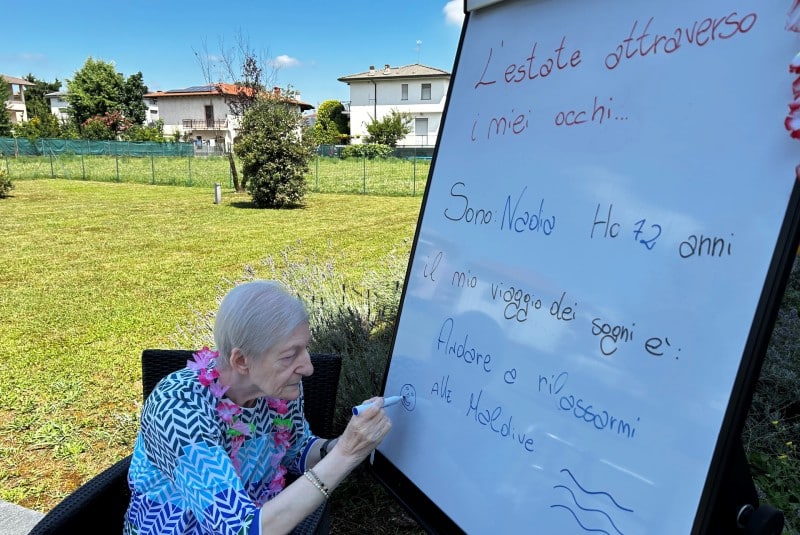 L'estate attraverso
i miei occhi...
Sono: Nadia Ho 72 anni
il mio viaggio dei sogni è:
Andare a rilassarmi
ALLE Maldive